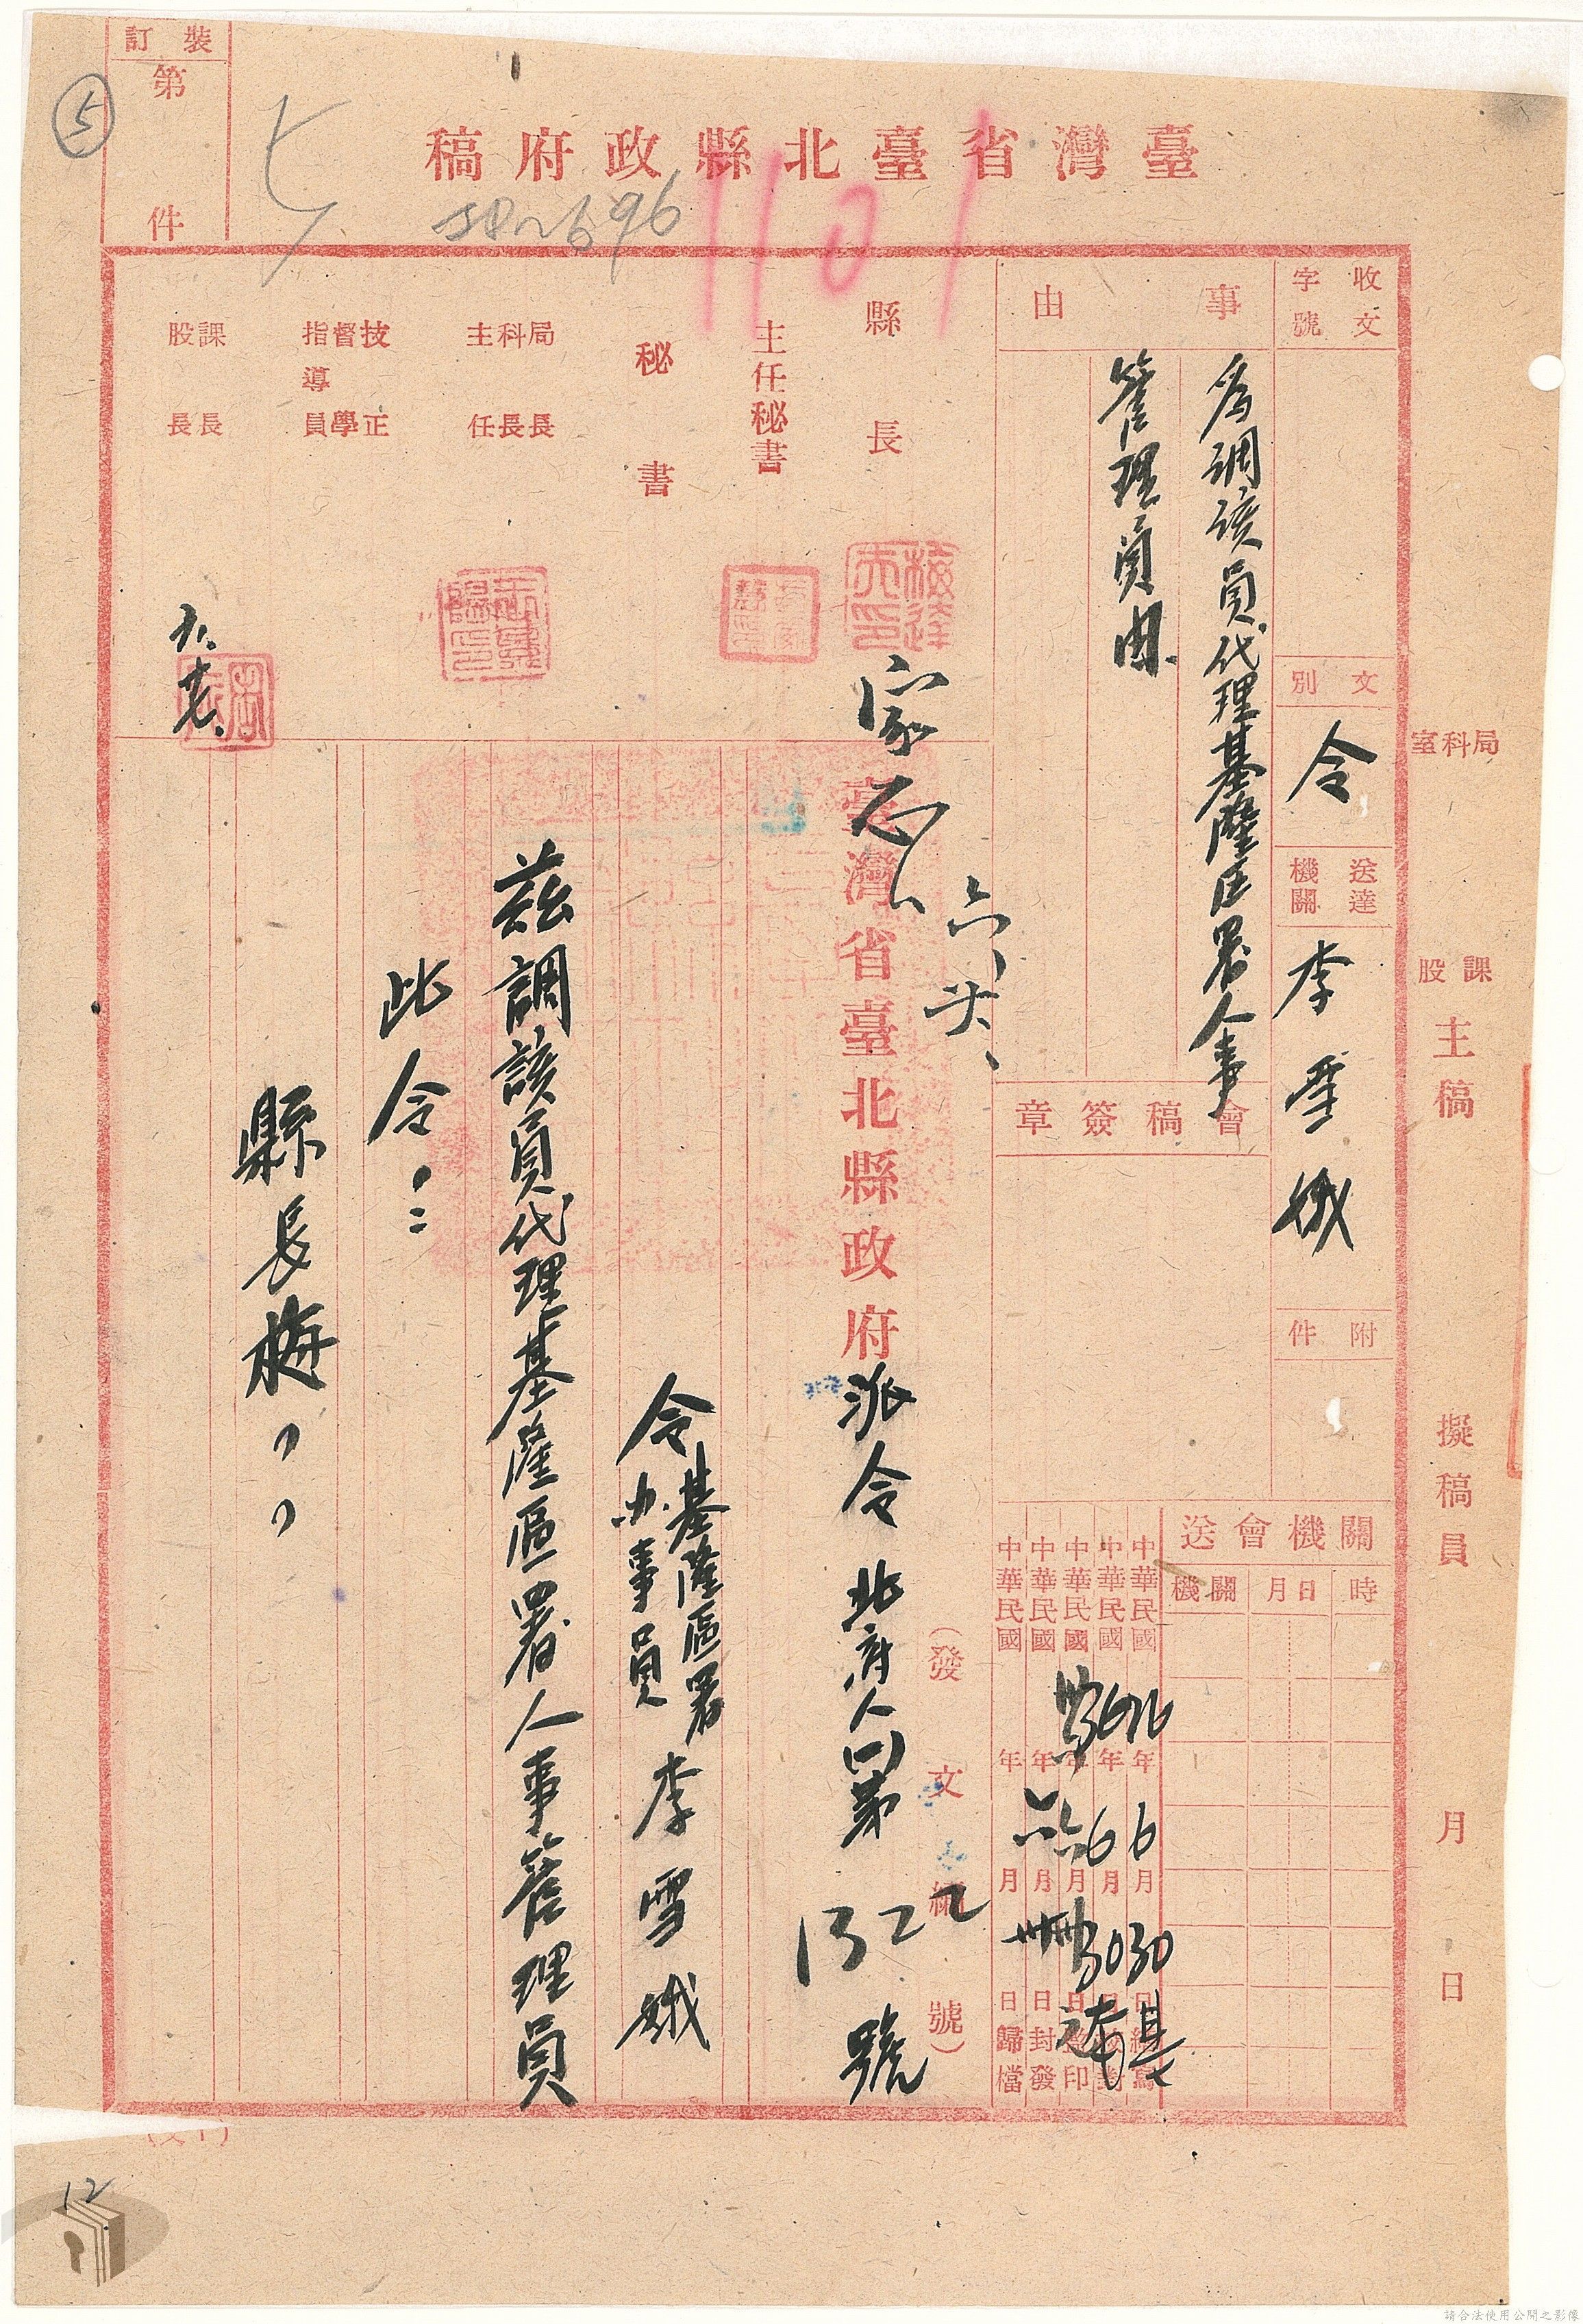 裝訂
第
件
5
臺灣省臺北縣政府稿
1101
收文
字號
文別
令
送達機關
李雪娥
附件
事由
為調該員代理基隆區署人事
管理員由
會稿簽章
局科室
課股
主稿
擬稿員
月
日
送會機關
機關
月日
時
中華民國 年 6 月 30 日繕寫
中華民國 年 6 月 30 日校對
中華民國 年 六 月 卅 日蓋印
中華民國 年 六 月 卅 日封發
中華民國 年 月 日歸檔
縣長
主任秘書
秘書
局科主
長長任
技督指導
正學員
課股
長長
六、
臺灣省臺北縣政府派令
北府人 第 1322 號
(發文編號)
令
基隆區署
办事員
李雪娥
茲調該員代理基隆區署人事管理員
此令
縣長梅
12
請合法使用公開之影像